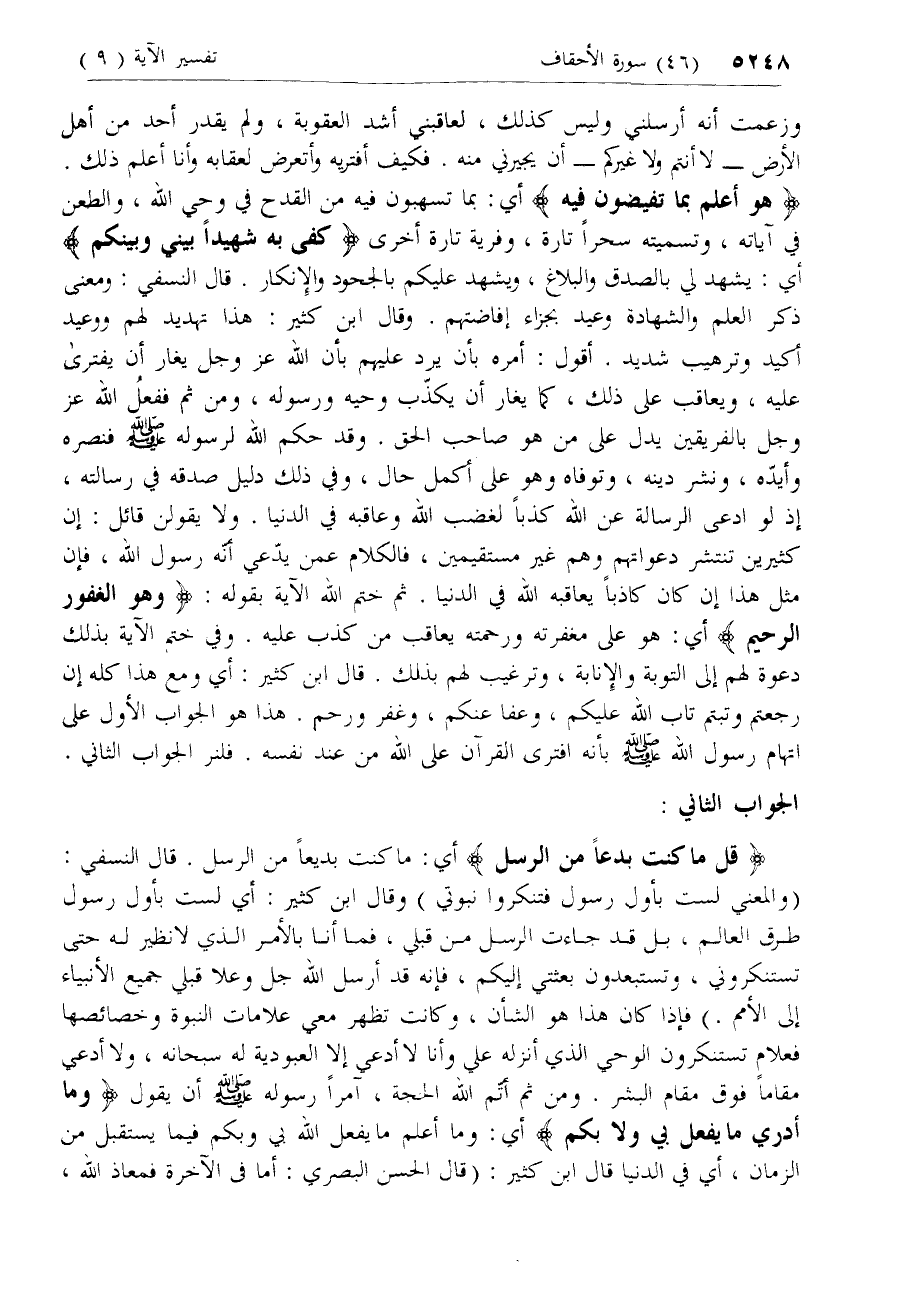 ٥٢٤٨ (٤٦) سورة الأحقاف تفسير الآية ( ٩ )
وزعمت أنه أرسلني وليس كذلك ، لعاقبني أشد العقوبة ، ولم يقدر أحد من أهل
الأرض ــ لا أنتم ولا غيركم ــ أن يجيرني منه . فكيف أفتريه وأتعرض لعقابه وأنا أعلم ذلك .
﴿ هو أعلم بما تفيضون فيه ﴾ أي : بما تسهبون فيه من القدح في وحي الله ، والطعن
في آياته ، وتسميته سحراً تارة ، وفرية تارة أخرى ﴿ كفى به شهيداً بيني وبينكم ﴾
أي : يشهد لي بالصدق والبلاغ ، ويشهد عليكم بالجحود والإنكار . قال النسفي : ومعنى
ذكر العلم والشهادة وعيد بجزاء إفاضتهم . وقال ابن كثير : هذا تهديد لهم ووعيد
أكيد وترهيب شديد . أقول : أمره بأن يرد عليهم بأن الله عز وجل يغار أن يفترىٰ
عليه ، ويعاقب على ذلك ، كما يغار أن يكذّب وحيه ورسوله ، ومن ثم ففعلُ الله عز
وجل بالفريقين يدل على من هو صاحب الحق . وقد حكم الله لرسوله ﷺ فنصره
وأيدّه ، ونشر دينه ، وتوفاه وهو على أكمل حال ، وفي ذلك دليل صدقه في رسالته ،
إذ لو ادعى الرسالة عن الله كذباً لغضب الله وعاقبه في الدنيا . ولا يقولن قائل : إن
كثيرين تنتشر دعواتهم وهم غير مستقيمين ، فالكلام عمن يدّعي أنّه رسول الله ، فإن
مثل هذا إن كان كاذباً يعاقبه الله في الدنيا . ثم ختم الله الآية بقوله : ﴿ وهو الغفور
الرحيم ﴾ أي : هو على مغفرته ورحمته يعاقب من كذب عليه . وفي ختم الآية بذلك
دعوة لهم إلى التوبة والإنابة ، وترغيب لهم بذلك . قال ابن كثير : أي ومع هذا كله إن
رجعتم وتبتم تاب الله عليكم ، وعفا عنكم ، وغفر ورحم . هذا هو الجواب الأول على
اتهام رسول الله ﷺ بأنه افترى القرآن على الله من عند نفسه . فلنر الجواب الثاني .
الجواب الثاني :
﴿ قل ما كنت بدعاً من الرسل ﴾ أي : ما كنت بديعاً من الرسل . قال النسفي :
(والمعني لست بأول رسول فتنكروا نبوتي ) وقال ابن كثير : أي لست بأول رسول
طرق العالم ، بل قد جاءت الرسل من قبلي ، فما أنا بالأمر الذي لانظير له حتى
تستنكروني ، وتستبعدون بعثتي إليكم ، فإنه قد أرسل الله جل وعلا قبلي جميع الأنبياء
إلى الأمم .) فإذا كان هذا هو الشأن ، وكانت تظهر معي علامات النبوة وخصائصها
فعلام تستنكرون الوحي الذي أنزله علي وأنا لا أدعي إلا العبودية له سبحانه ، ولا أدعي
مقاماً فوق مقام البشر . ومن ثم أتّم الله الحجة ، آمراً رسوله ﷺ أن يقول ﴿ وما
أدري ما يفعل بي ولا بكم ﴾ أي : وما أعلم ما يفعل الله بي وبكم فيما يستقبل من
الزمان ، أي في الدنيا قال ابن كثير : (قال الحسن البصري : أما فى الآخرة فمعاذ الله ،